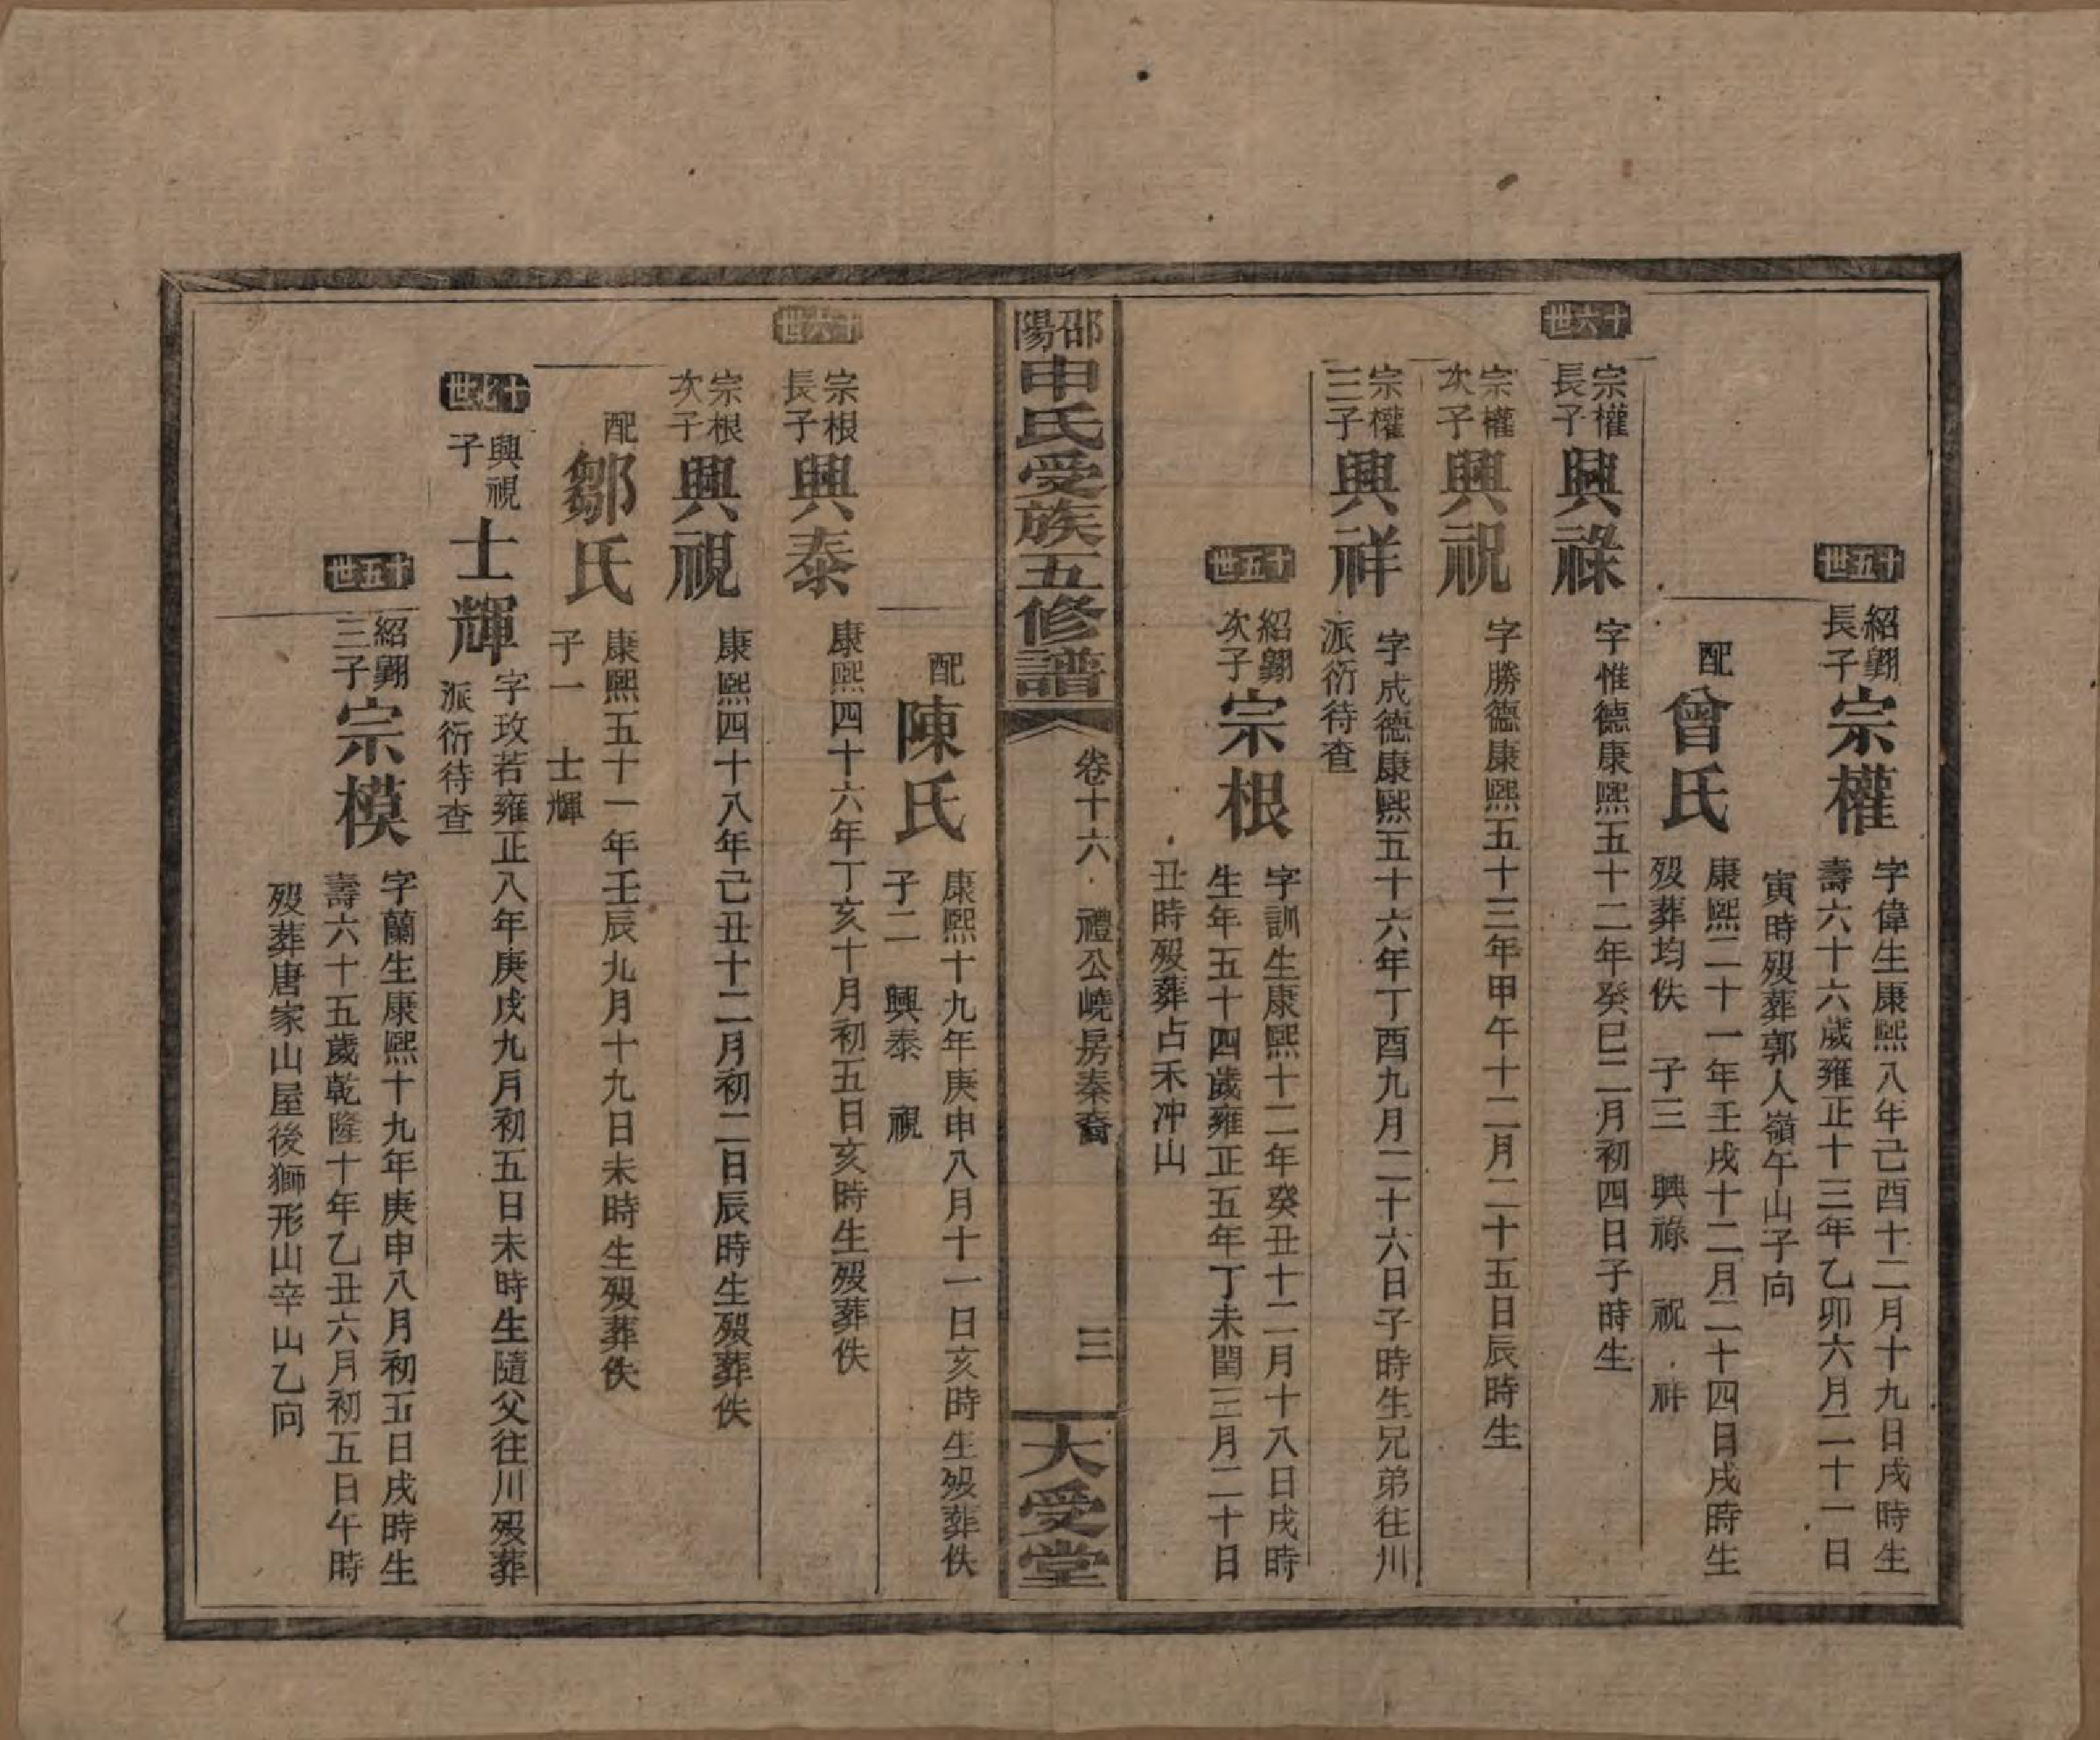 十五世
紹翾
長子
宗權
字偉生康熙八年己酉十二月十九日戌時生
壽六十六歲雍正十三年乙卯六月二十一日
寅時歿葬郭人嶺午山子向
配
曾氏
康熙二十一年壬戌十二月二十四日戌時生
歿葬均佚 子三 興祿 祝 祥
十六世
宗權
長子
興祿
字惟德康熙五十二年癸巳二月初四日子時生
宗權
次子
興祝
字勝德康熙五十三年甲午十二月二十五日辰時生
宗權
三子
興祥
字成德康熙五十六年丁酉九月二十六日子時生兄弟往川
派衍待查
十五世
紹翾
次子
宗根
字訓生康熙十二年癸丑十二月十八日戌時
生年五十四歲雍正五年丁未閏三月二十日
丑時歿葬占禾冲山
邵陽
申氏受族五修譜
卷十六 禮公嶢房秦裔
三
大受堂
配
陳氏
康熙十九年庚申八月十一日亥時生歿葬佚
子二 興泰 視
十六世
宗根
長子
興泰
康熙四十六年丁亥十月初五日亥時生歿葬佚
宗根
次子
興視
康熙四十八年己丑十二月初二日辰時生歿葬佚
配
鄒氏
康熙五十一年壬辰九月十九日未時生歿葬佚
子一 士輝
十七世
興視
子
士輝
字玫若雍正八年庚戌九月初五日未時生隨父往川歿葬
派衍待查
十五世
紹翾
三子
宗模
字蘭生康熙十九年庚申八月初五日戌時生
壽六十五歲乾隆十年乙丑六月初五日午時
歿葬唐家山屋後獅形山辛山乙向